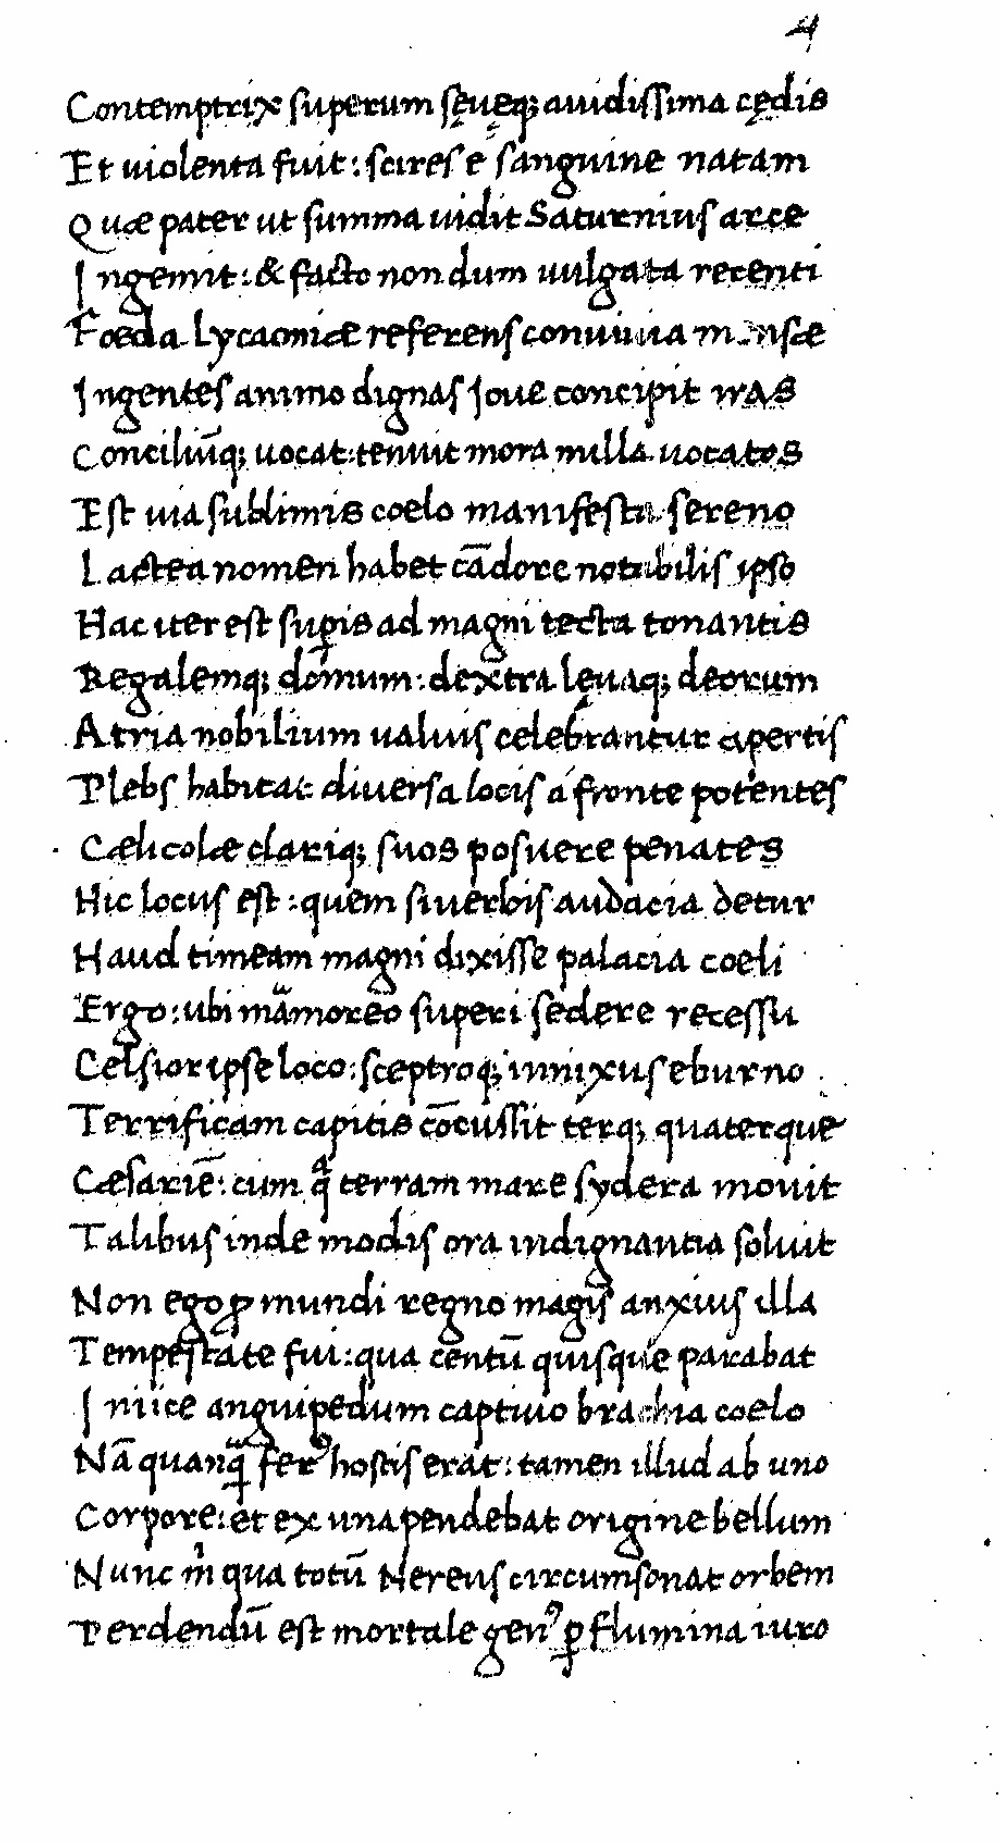 4
Contemptrix superum sęuęq; auidissima cędis
Et uiolenta fuit: scires é sanguine natam
Quæ pater ut summa uidit Saturnius arce
Ingemit: & facto non dum uulgata recenti
Foeda Lycaoniæ referens conuiuia mensæ
Ingentes animo dignas Ioue concipit iras
Conciliūq; uocat: tenuit mora nulla uocatos
Est uia sublimis coelo manifesta sereno
Lactea nomen habet cādore notabilis ipso
Hac iter est suꝑis ad magni tecta tonantis
Regalemq; domum: dextra lęuaq; deorum
Atria nobilium ualuis celebrantur apertis
Plebs habitat diuersa locis á fronte potentes
Cælicolæ clariq; suos posuere penates
Hic locus est: quem si uerbis audacia detur
Haud timeam magni dixisse palacia coeli
Ergo: ubi maͣmoreo superi sedere recessu
Celsior ipse loco: sceptroq; innixus eburno
Terrificam capitis cōcussit terq; quaterque
Cæsariē: cum qͣ terram mare sydera mouit
Talibus inde modis ora indignantia soluit
Non ego ꝓ mundi regno magis anxius illa
Tempestate fui: qua centū quisque parabat
Iniice anguipedum captiuo brachia coelo
Nā quanqͣ̄ ferꝰ hostis erat: tamen illud ab uno
Corpore: et ex una pendebat origine bellum
Nunc mͥ qua totū Nereus circumsonat orbem
Perdendū est mortale genꝰ ꝑ flumina iuro